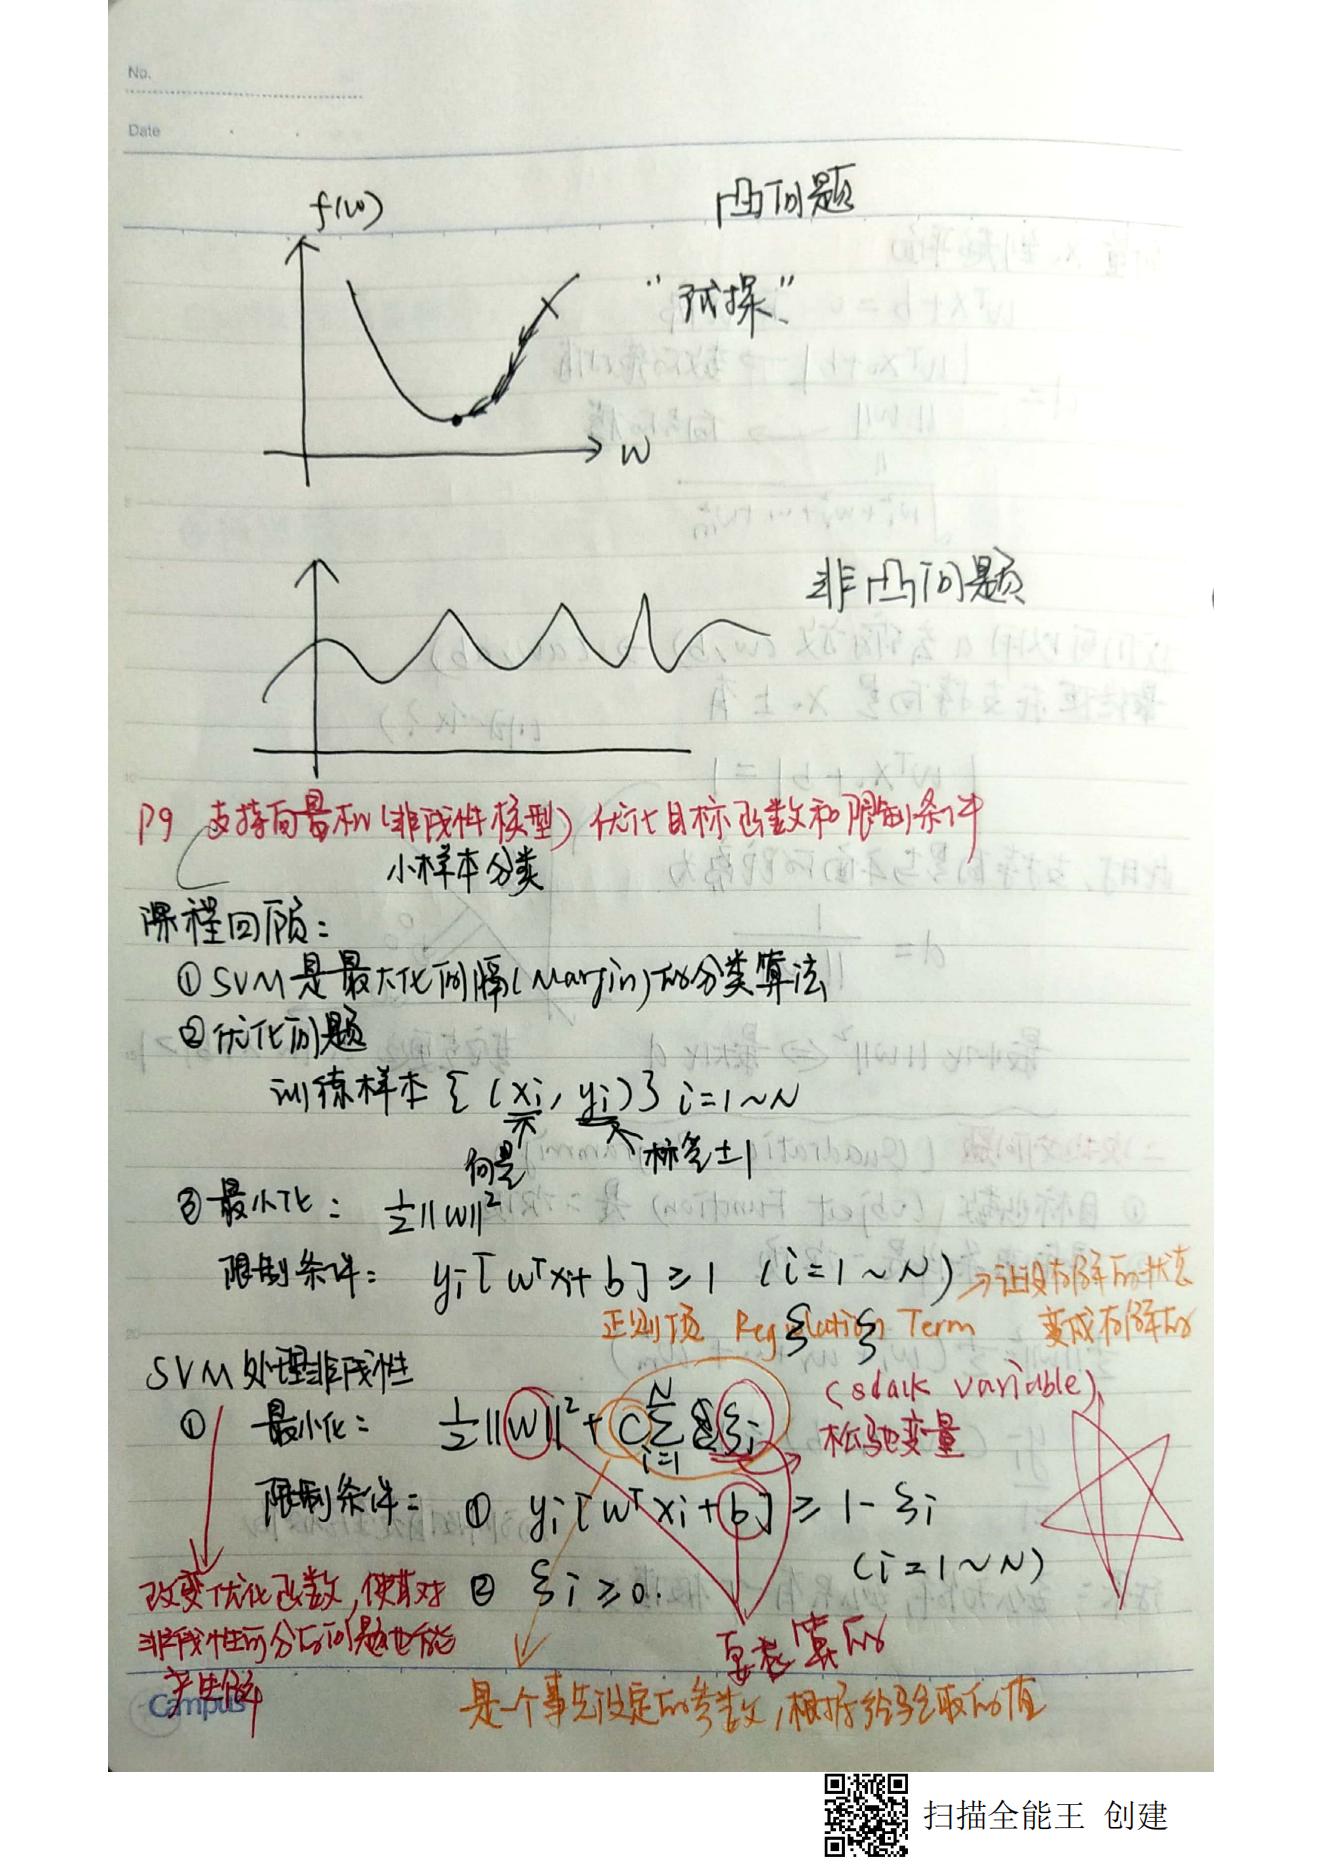 No.
Date
f(w)
凸问题
“试探”
w
非凸问题
P9 支持向量机(非线性模型)优化目标函数和限制条件
小样本分类
课程回顾:
① SVM是最大化间隔(Margin)的分类算法
② 优化问题
训练样本 {(xi, yi)} i=1~N
向量
标签±1
③ 最小化: ½||W||²
限制条件: yi[wᵀxi+b] ≥ 1 (i=1~N)
⇒让没有解的状态
变成有解的
正则项 Regulation Term
ξ ξ
SVM处理非线性
(sdalk variable)
① 最小化: ½||W||² + C∑ᵢ₌₁ᴺ ξi
松驰变量
限制条件: ① yi[wᵀxi+b] ≥ 1-ξi
(i=1~N)
② ξi ≥ 0.
改变优化函数,使其对
非线性可分的问题也能
产生解
要求算的
是一个事先设定的参数,根据经验取的值
Campus
扫描全能王 创建